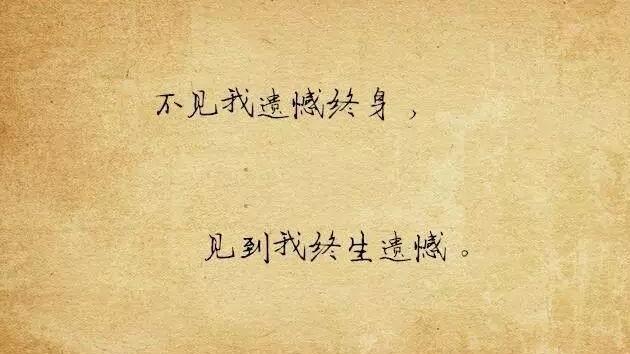 不见我遗憾终身，
见到我终生遗憾。